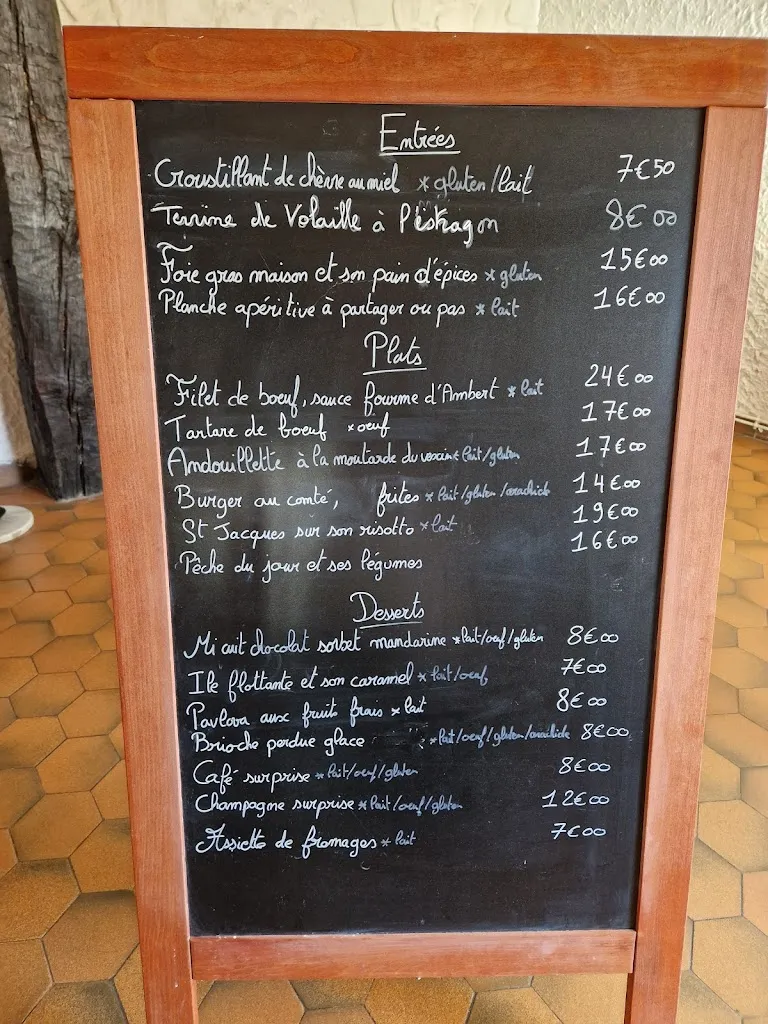 Entrées
Croustillant de chèvre au miel * gluten/lait 7€50
Terrine de Volaille à l'estragon 8€00
Foie gras maison et son pain d'épices * gluten 15€00
Planche apéritive à partager ou pas * lait 16€00
Plats
Filet de boeuf, sauce fourme d'Ambert * lait 24€00
Tartare de boeuf * oeuf 17€00
Andouillette à la moutarde du * lait/gluten 17€00
Burger au comté, frites * lait/gluten/arachide 14€00
St Jacques sur son risotto * lait 19€00
Pêche du jour et ses légumes 16€00
Desserts
Mi cuit chocolat sorbet mandarine * lait/oeuf/gluten 8€00
Ile flottante et son caramel * lait/oeuf 7€00
Pavlova aux fruits frais * lait 8€00
Brioche perdue glace * lait/oeuf/gluten/arachide 8€00
Café surprise * lait/oeuf/gluten 8€00
Champagne surprise * lait/oeuf/gluten 12€00
Assiette de fromages * lait 7€00